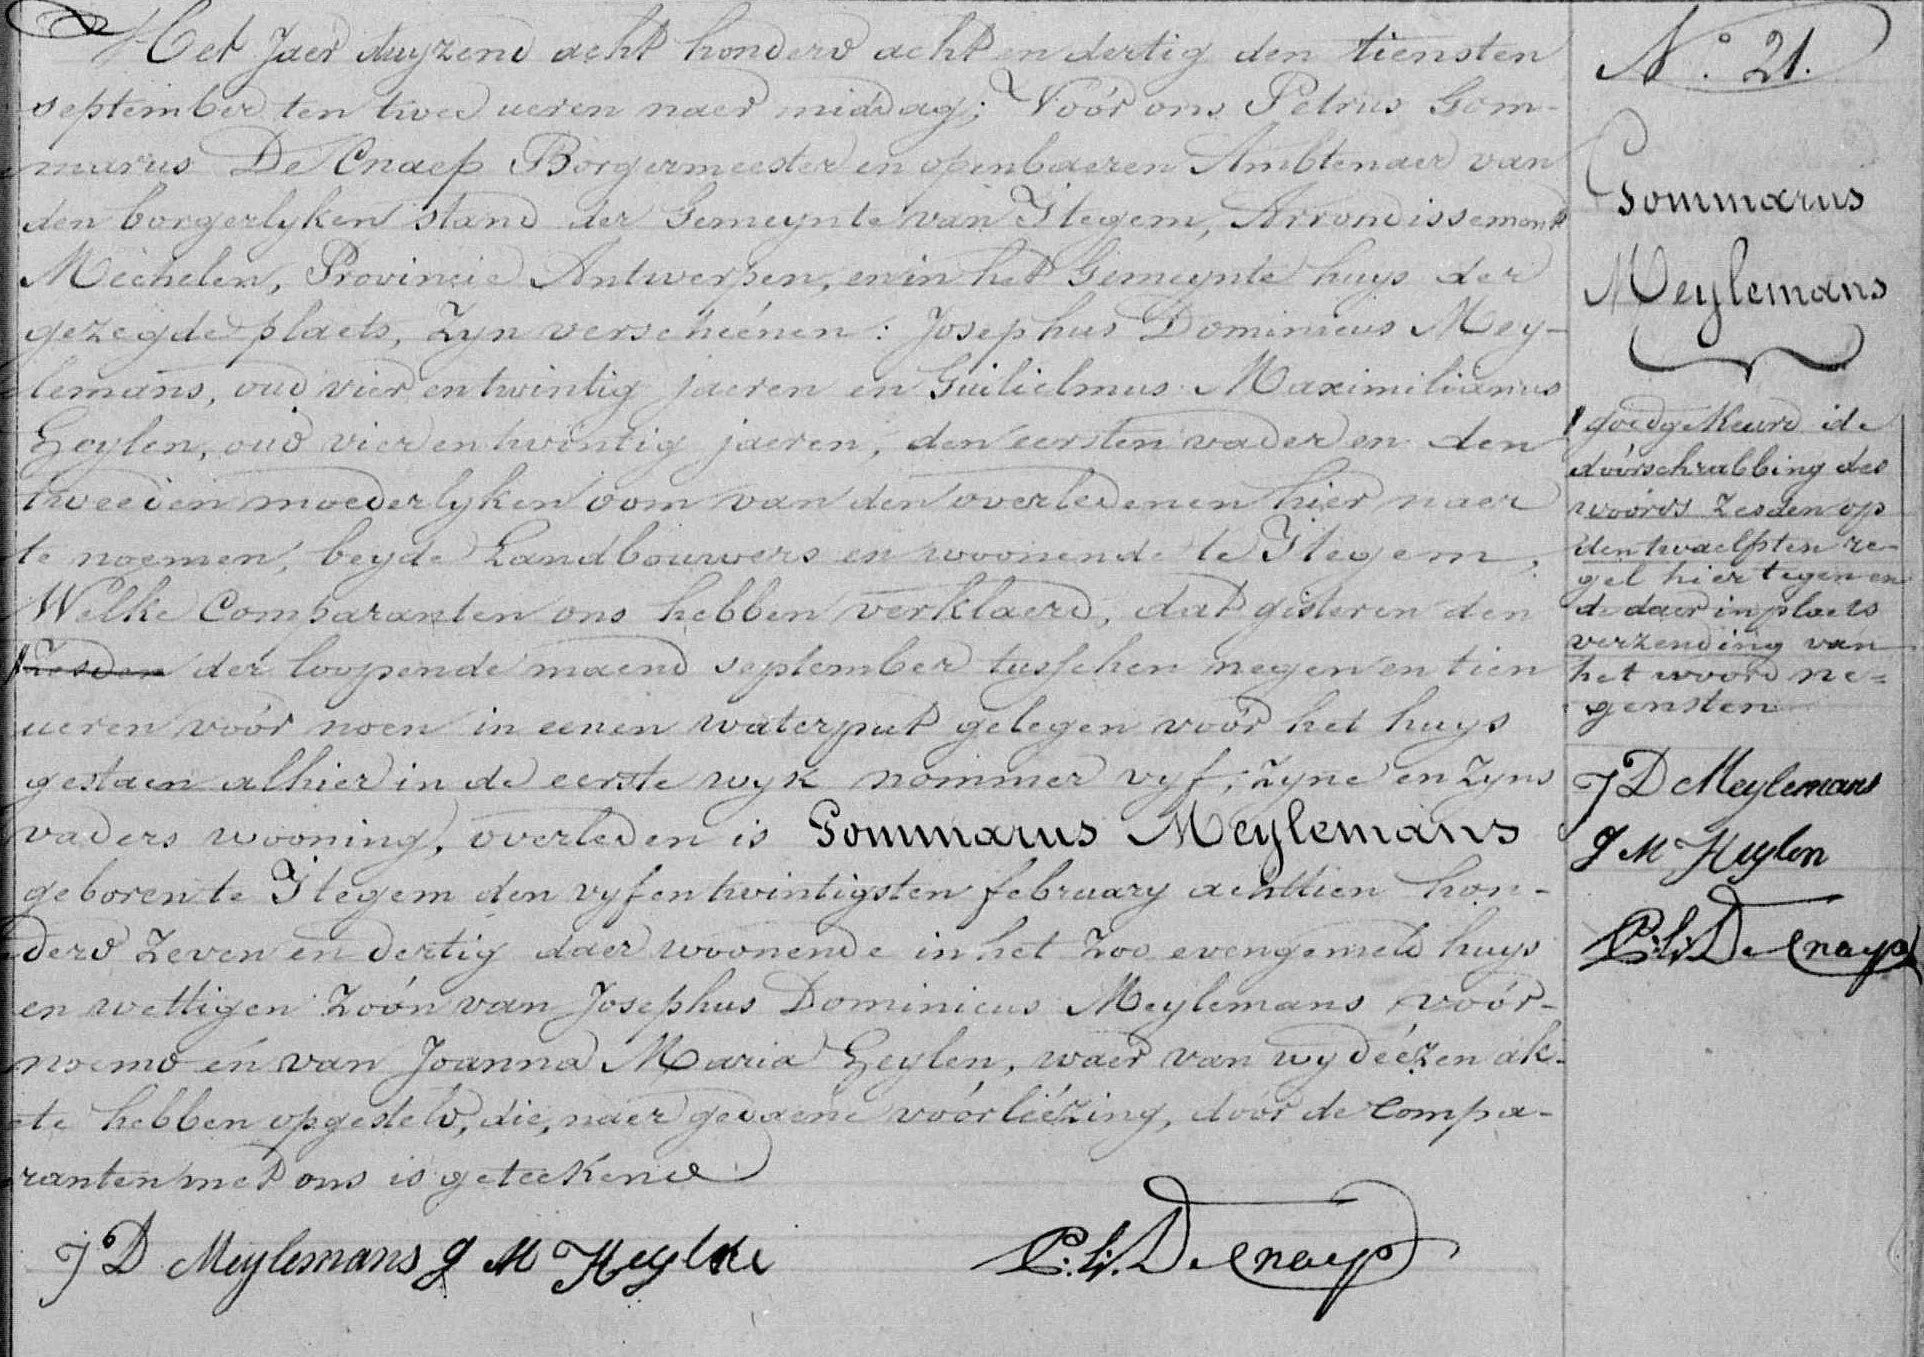 Het Jaer duyzend acht honderd acht en dertig den tiensten
september ten twee ueren naer middag; Voór ons Petrus Gom-
marus De Cnaep Borgermeester en openbaeren Ambtenaer van
den borgerlyken stand der Gemeynte van Itegem, Arrondissement
Mechelen, Provincie Antwerpen, en in het Gemeynte huys der
gezegde plaets, zyn verscheénen: Josephus Dominicus Mey-
lemans, oud vier en twintig jaeren en Guilielmus Maximilianus
Heylen, oud vier en twintig jaeren, den eersten vader en den
tweeden moederlyken oom van den overledenen hier naer
te noemen, beyde Landbouwers en woonende te Itegem,
Welke Comparanten ons hebben verklaerd, dat gisteren den
zesden der loopende maend september tusschen negen en tien
ueren voór noen in eenen waterput gelegen voór het huys
gestaen alhier in de eerste wyk nommer vyf, zyne en zyns
vaders wooning, overleden is Gommarus Meylemans
geboren te Itegem den vyfentwintigsten february achttien hon-
derd zeven en dertig daer woonende in het zoo evengemeld huys
en wettigen zoón van Josephus Dominicus Meylemans voór-
noemd en van Joanna Maria Heylen, waer van wy deézen ak-
te hebben opgesteld, die, naer gedaene voórleézing, door de Compa-
ranten met ons is geteekend
J D Meylemans G M Heylen P. G. De Cnaep
N.° 21.
Gommarus
Meylemans
goedgekeurd de
doórschrabbing des
woords zesden op
den twaelfsten re-
gel hier tegen en
de daer in plaets
verzending van
het woord ne=
gensten
J D Meylemans
G M Heylen
P. G. De Cnaep